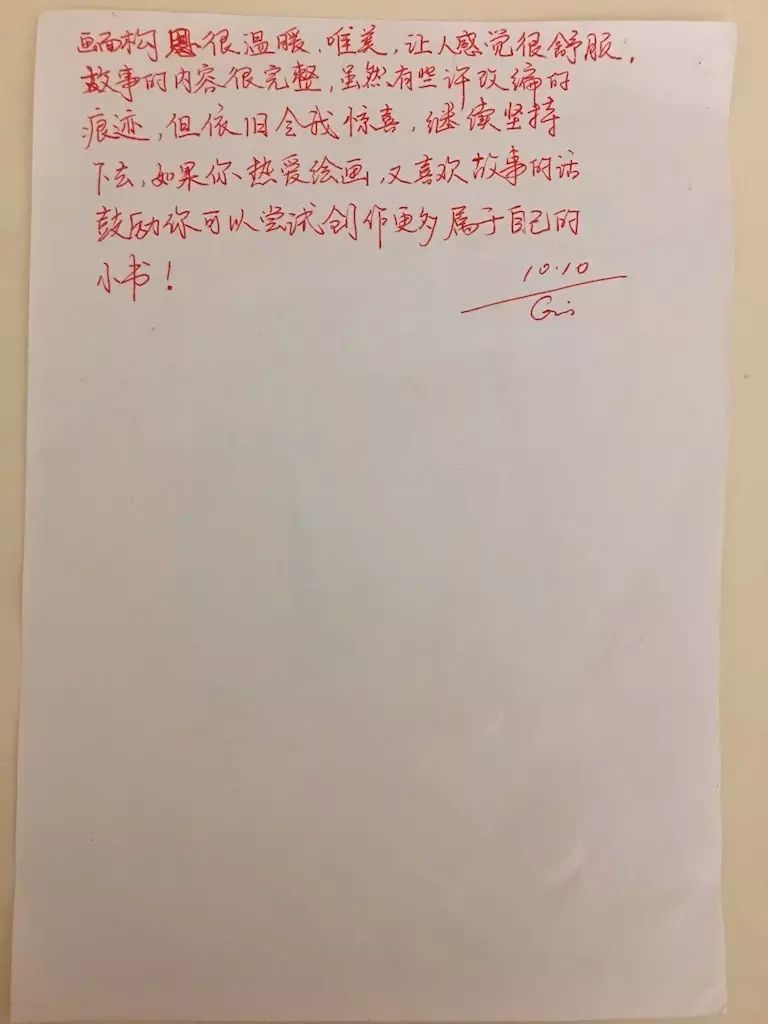 画面构思很温暖,唯美,让人感觉很舒服.
故事的内容很完整,虽然有些许改编的
痕迹,但依旧令我惊喜,继续坚持
下去,如果你热爱绘画,又喜欢故事的话
鼓励你可以尝试创作更多属于自己的
小书!
10.10